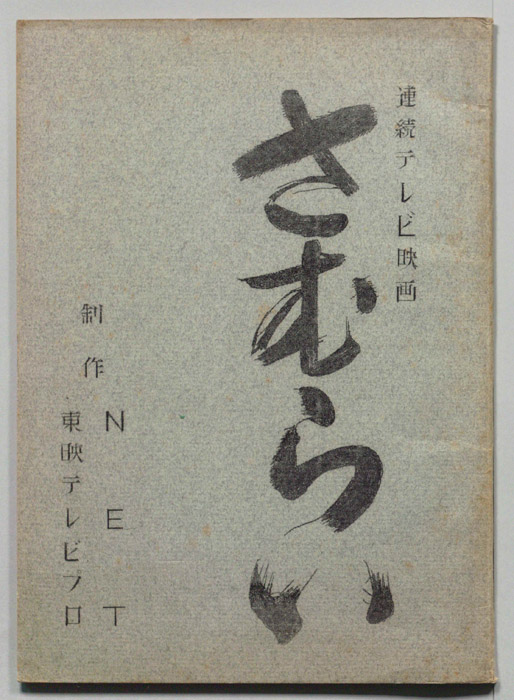 連続テレビ映画
さむらい
制作
NET
東映テレビプロ